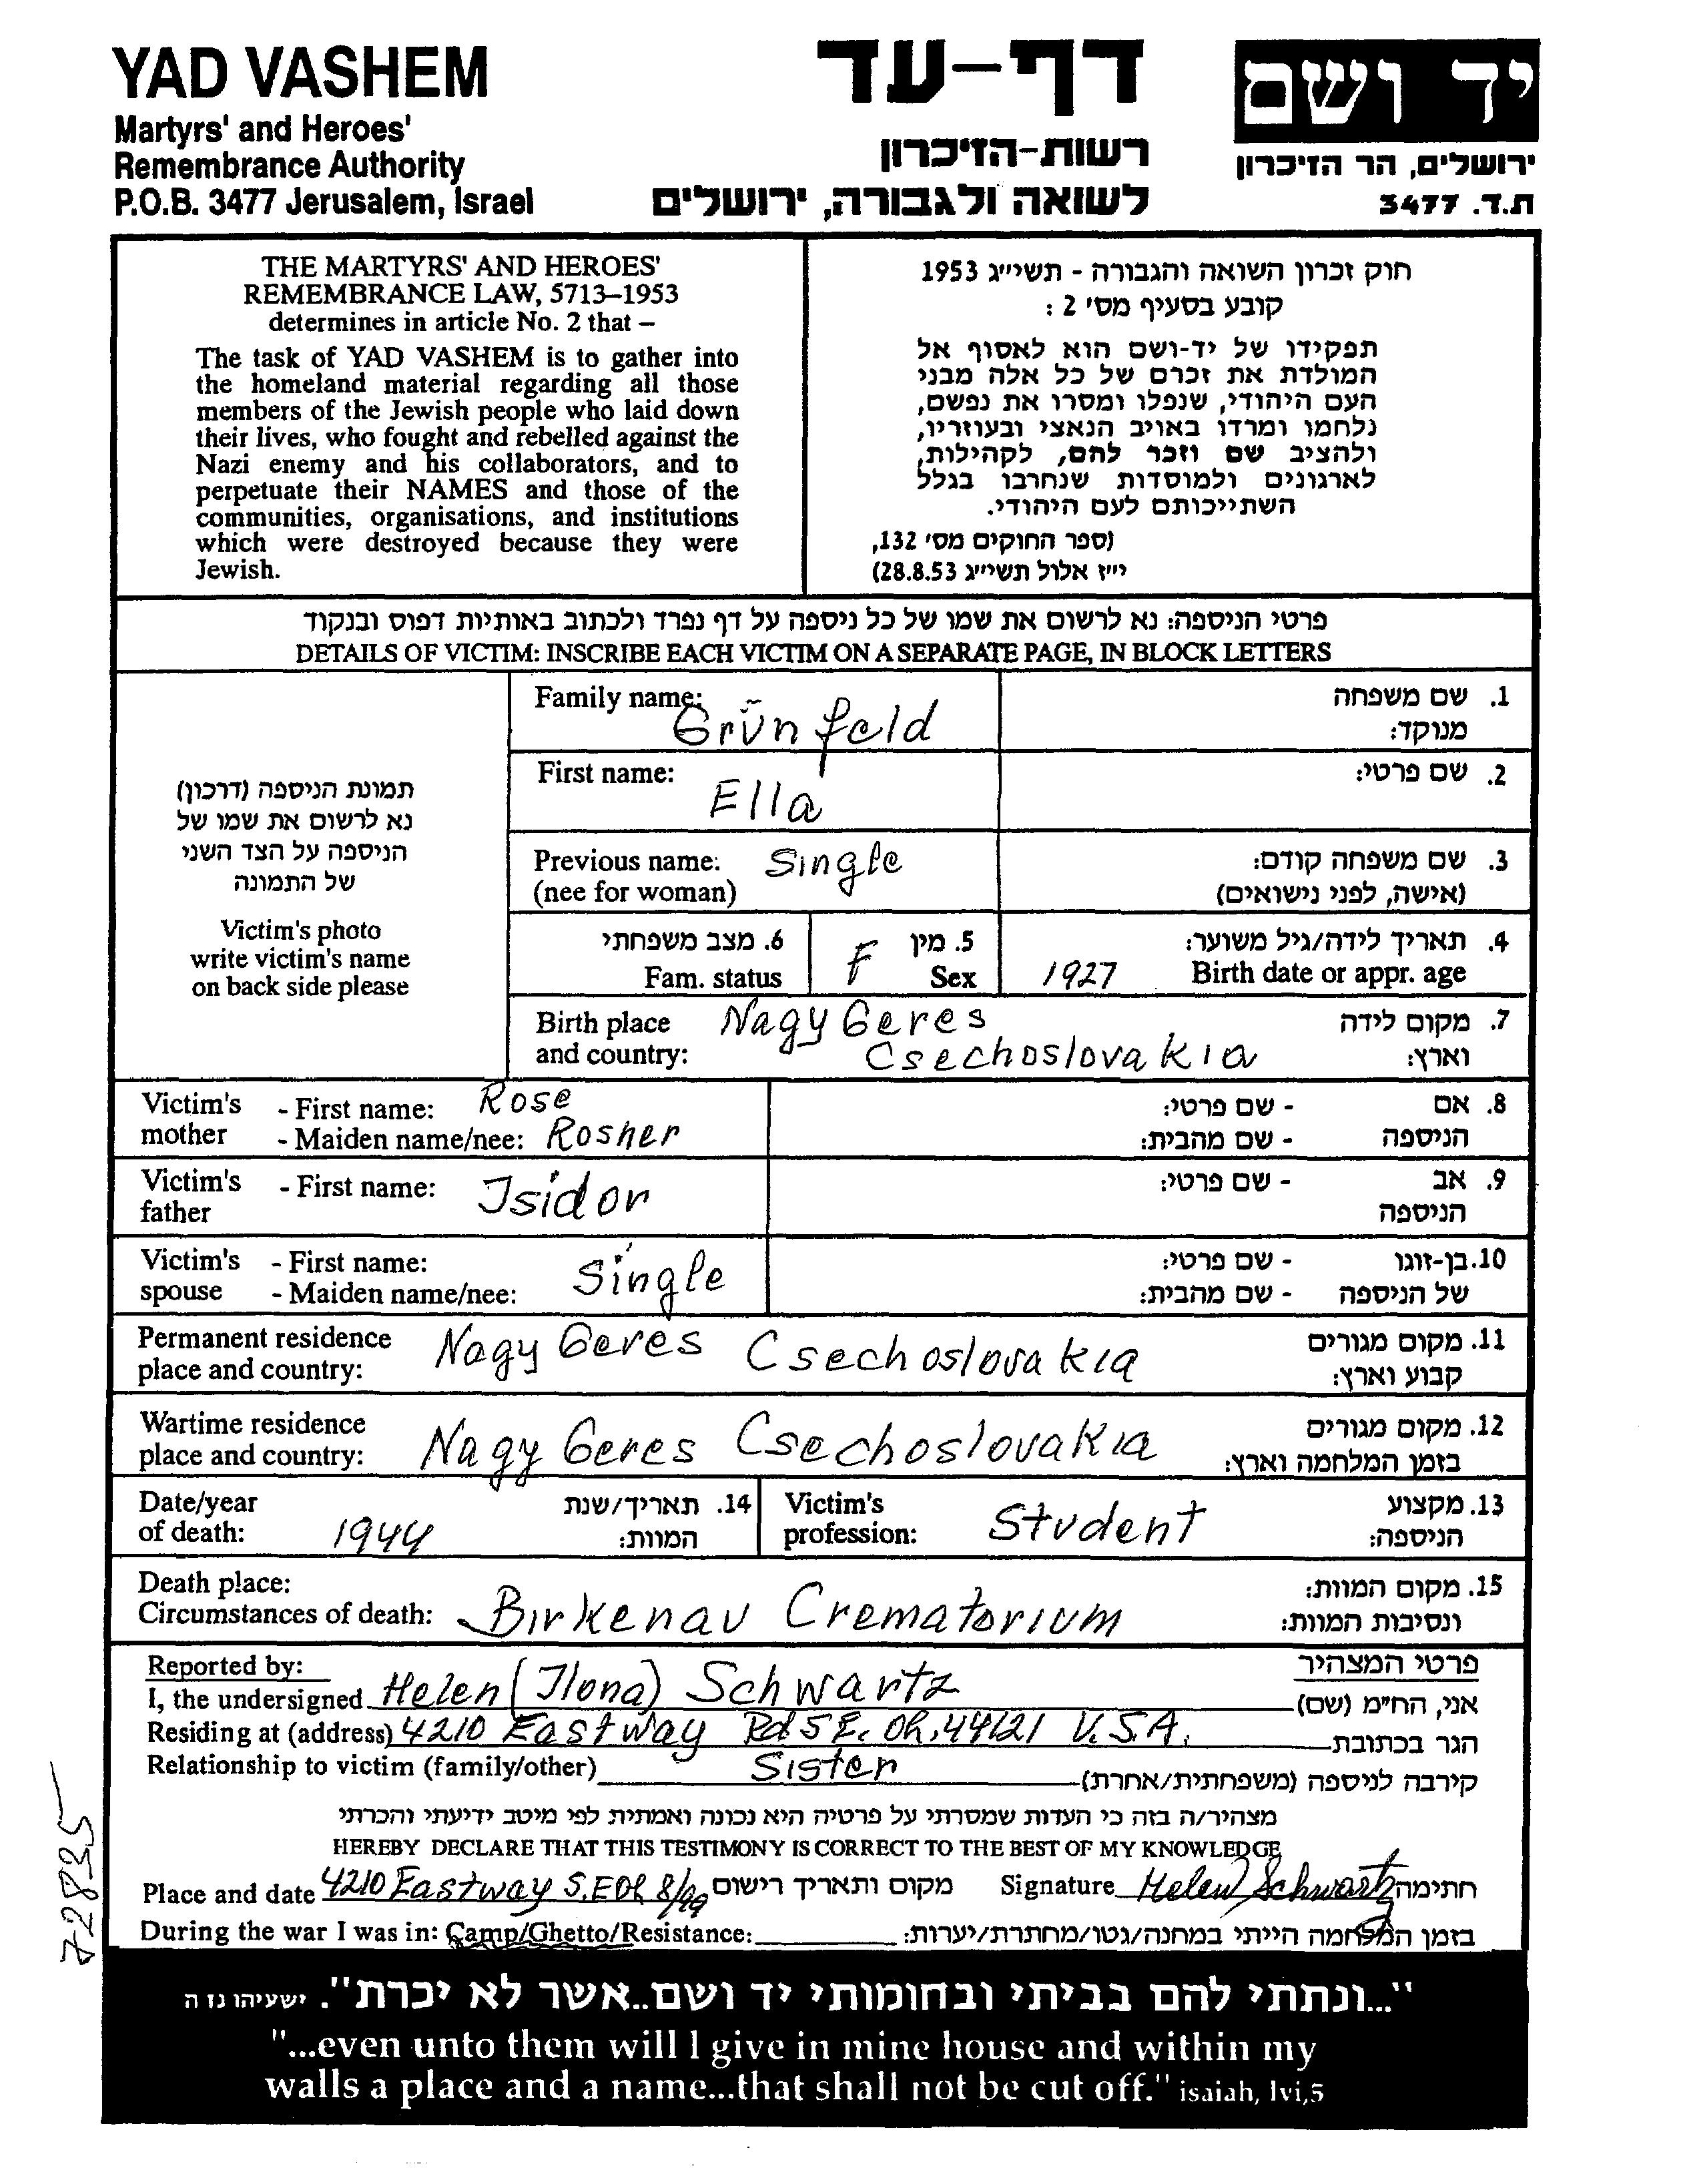 YAD VASHEM
Martyrs' and Heroes'
Remembrance Authority
P.O.B. 3477 Jerusalem, Israel
דף-עד
רשות-הזיכרון
לשואה ולגבורה, ירושלים
יד ושם
ירושלים, הר הזיכרון
ת.ד. 3477
THE MARTYRS' AND HEROES'
REMEMBRANCE LAW, 5713–1953
determines in article No. 2 that –
The task of YAD VASHEM is to gather into
the homeland material regarding all those
members of the Jewish people who laid down
their lives, who fought and rebelled against the
Nazi enemy and his collaborators, and to
perpetuate their NAMES and those of the
communities, organisations, and institutions
which were destroyed because they were
Jewish.
חוק זכרון השואה והגבורה - תשי״ג 1953
קובע בסעיף מס' 2 :
תפקידו של יד-ושם הוא לאסוף אל
המולדת את זכרם של כל אלה מבני
העם היהודי, שנפלו ומסרו את נפשם,
נלחמו ומרדו באויב הנאצי ובעוזריו,
ולהציב שם וזכר להם, לקהילות,
לארגונים ולמוסדות שנחרבו בגלל
השתייכותם לעם היהודי.
(ספר החוקים מס' 132,
י״ז אלול תשי״ג 28.8.53)
פרטי הניספה: נא לרשום את שמו של כל ניספה על דף נפרד ולכתוב באותיות דפוס ובנקוד
DETAILS OF VICTIM: INSCRIBE EACH VICTIM ON A SEPARATE PAGE, IN BLOCK LETTERS
תמונת הניספה (דרכון)
נא לרשום את שמו של
הניספה על הצד השני
של התמונה
Victim's photo
write victim's name
on back side please
Family name: Grünfeld 1. שם משפחה
מנוקד:
First name: Ella 2. שם פרטי:
Previous name: Single 3. שם משפחה קודם:
(nee for woman) (אישה, לפני נישואים)
6. מצב משפחתי 5. מין 4. תאריך לידה/גיל משוער:
Fam. status F Sex 1927 Birth date or appr. age
Birth place Nagy Geres 7. מקום לידה
and country: Csechoslovakia וארץ:
Victim's - First name: Rose 8. אם - שם פרטי:
mother - Maiden name/nee: Rosner הניספה - שם מהבית:
Victim's - First name: Isidor 9. אב - שם פרטי:
father הניספה
Victim's - First name: Single 10. בן-זוגו - שם פרטי:
spouse - Maiden name/nee: של הניספה - שם מהבית:
Permanent residence Nagy Geres Csechoslovakia 11. מקום מגורים
place and country: קבוע וארץ:
Wartime residence Nagy Geres Csechoslovakia 12. מקום מגורים
place and country: בזמן המלחמה וארץ:
Date/year 14. תאריך/שנת Victim's Student 13. מקצוע
of death: 1944 המוות: profession: הניספה:
Death place: 15. מקום המוות:
Circumstances of death: Birkenau Crematorium ונסיבות המוות:
Reported by: פרטי המצהיר
I, the undersigned Helen (Ilona) Schwartz אני, הח״מ (שם)
Residing at (address) 4210 Eastway Rd S E. Oh. 44121 U.S.A. הגר בכתובת
Relationship to victim (family/other) Sister קירבה לניספה (משפחתית/אחרת)
מצהיר/ה בזה כי העדות שמסרתי על פרטיה היא נכונה ואמתית לפי מיטב ידיעתי והכרתי
HEREBY DECLARE THAT THIS TESTIMONY IS CORRECT TO THE BEST OF MY KNOWLEDGE
Place and date 4210 Eastway S.E Oh 8/99 מקום ותאריך רישום Signature Helen Schwartz חתימה
During the war I was in: Camp/Ghetto/Resistance: בזמן המלחמה הייתי במחנה/גטו/מחתרת/יערות:
"...ונתתי להם בביתי ובחומותי יד ושם..אשר לא יכרת". ישעיהו נו ה
"...even unto them will I give in mine house and within my
walls a place and a name...that shall not be cut off." isaiah, lvi,5
72835